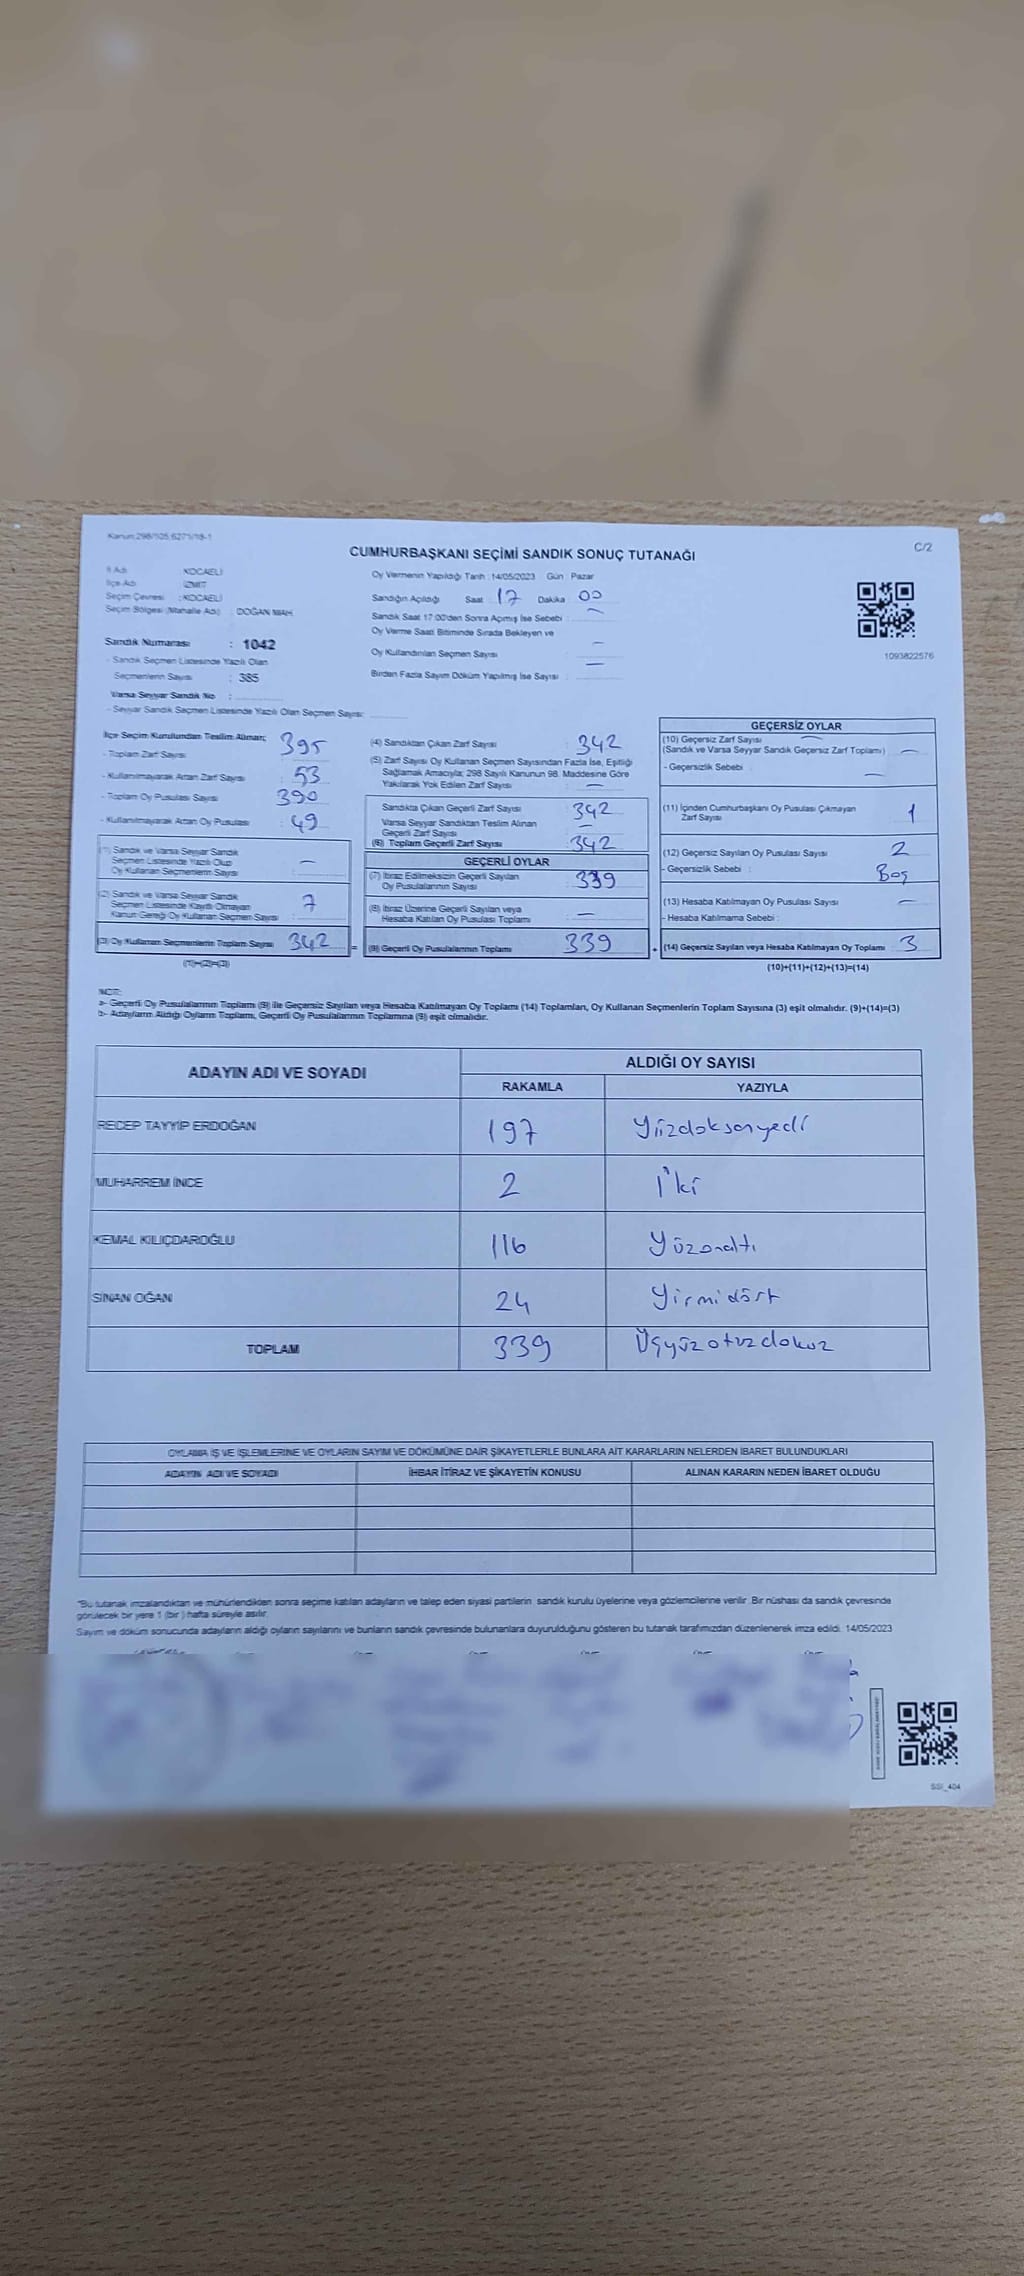 Kanun:298/105,6271/18-1
C/2
CUMHURBAŞKANI SEÇİMİ SANDIK SONUÇ TUTANAĞI
İl Adı KOCAELİ
İlçe Adı İZMİT
Seçim Çevresi : KOCAELİ
Seçim Bölgesi (Mahalle Adı) : DOĞAN MAH.
Sandık Numarası : 1042
- Sandık Seçmen Listesinde Yazılı Olan
Seçmenlerin Sayısı : 385
Varsa Seyyar Sandık No :
- Seyyar Sandık Seçmen Listesinde Yazılı Olan Seçmen Sayısı:
Oy Vermenin Yapıldığı Tarih :14/05/2023 Gün : Pazar
Sandığın Açıldığı Saat 17 Dakika 00
Sandık Saat 17:00'den Sonra Açımış İse Sebebi : –
Oy Verme Saati Bitiminde Sırada Bekleyen ve
Oy Kullandırılan Seçmen Sayısı –
Birden Fazla Sayım Döküm Yapılmış İse Sayısı : –
1093822576
İlçe Seçim Kurulundan Teslim Alınan; 395
- Toplam Zarf Sayısı
- Kullanılmayarak Artan Zarf Sayısı 53
- Toplam Oy Pusulası Sayısı 390
- Kullanılmayarak Artan Oy Pusulası : 49
(1) Sandık ve Varsa Seyyar Sandık
Seçmen Listesinde Yazılı Olup
Oy Kullanan Seçmenlerin Sayısı : –
(2) Sandık ve Varsa Seyyar Sandık
Seçmen Listesinde Kayıtlı Olmayan
Kanun Gereği Oy Kullanan Seçmen Sayısı : 7
(3) Oy Kullanan Seçmenlerin Toplam Sayısı 342
(1)+(2)=(3)
(4) Sandıktan Çıkan Zarf Sayısı : 342
(5) Zarf Sayısı Oy Kullanan Seçmen Sayısından Fazla İse, Eşitliği
Sağlamak Amacıyla; 298 Sayılı Kanunun 98. Maddesine Göre
Yakılarak Yok Edilen Zarf Sayısı : –
Sandıkta Çıkan Geçerli Zarf Sayısı 342
Varsa Seyyar Sandıktan Teslim Alınan
Geçerli Zarf Sayısı –
(6) Toplam Geçerli Zarf Sayısı 342
GEÇERLİ OYLAR
(7) İtiraz Edilmeksizin Geçerli Sayılan
Oy Pusulalarının Sayısı : 339
(8) İtiraz Üzerine Geçerli Sayılan veya
Hesaba Katılan Oy Pusulası Toplamı : –
(9) Geçerli Oy Pusulalarının Toplamı : 339
GEÇERSİZ OYLAR
(10) Geçersiz Zarf Sayısı –
(Sandık ve Varsa Seyyar Sandık Geçersiz Zarf Toplamı) –
- Geçersizlik Sebebi : –
(11) İçinden Cumhurbaşkanı Oy Pusulası Çıkmayan
Zarf Sayısı 1
(12) Geçersiz Sayılan Oy Pusulası Sayısı 2
- Geçersizlik Sebebi : Boş
(13) Hesaba Katılmayan Oy Pusulası Sayısı –
- Hesaba Katılmama Sebebi :
(14) Geçersiz Sayılan veya Hesaba Katılmayan Oy Toplamı : 3
(10)+(11)+(12)+(13)=(14)
NOT:
a- Geçerli Oy Pusulalarının Toplamı (9) ile Geçersiz Sayılan veya Hesaba Katılmayan Oy Toplamı (14) Toplamları, Oy Kullanan Seçmenlerin Toplam Sayısına (3) eşit olmalıdır. (9)+(14)=(3)
b- Adayların Aldığı Oyların Toplamı, Geçerli Oy Pusulalarının Toplamına (9) eşit olmalıdır.
ADAYIN ADI VE SOYADI ALDIĞI OY SAYISI
RAKAMLA YAZIYLA
RECEP TAYYİP ERDOĞAN 197 Yüzdoksanyedi
MUHARREM İNCE 2 İki
KEMAL KILIÇDAROĞLU 116 Yüzonaltı
SİNAN OĞAN 24 Yirmidört
TOPLAM 339 Üçyüzotuzdokuz
OYLAMA İŞ VE İŞLEMLERİNE VE OYLARIN SAYIM VE DÖKÜMÜNE DAİR ŞİKAYETLERLE BUNLARA AİT KARARLARIN NELERDEN İBARET BULUNDUKLARI
ADAYIN ADI VE SOYADI İHBAR İTİRAZ VE ŞİKAYETİN KONUSU ALINAN KARARIN NEDEN İBARET OLDUĞU
*Bu tutanak imzalandıktan ve mühürlendikten sonra seçime katılan adayların ve talep eden siyasi partilerin sandık kurulu üyelerine veya gözlemcilerine verilir. Bir nüshası da sandık çevresinde
görülecek bir yere 1 (bir ) hafta süreyle asılır.
Sayım ve döküm sonucunda adayların aldığı oyların sayılarını ve bunların sandık çevresinde bulunanlara duyurulduğunu gösteren bu tutanak tarafımızdan düzenlenerek imza edildi. 14/05/2023
SSI_404